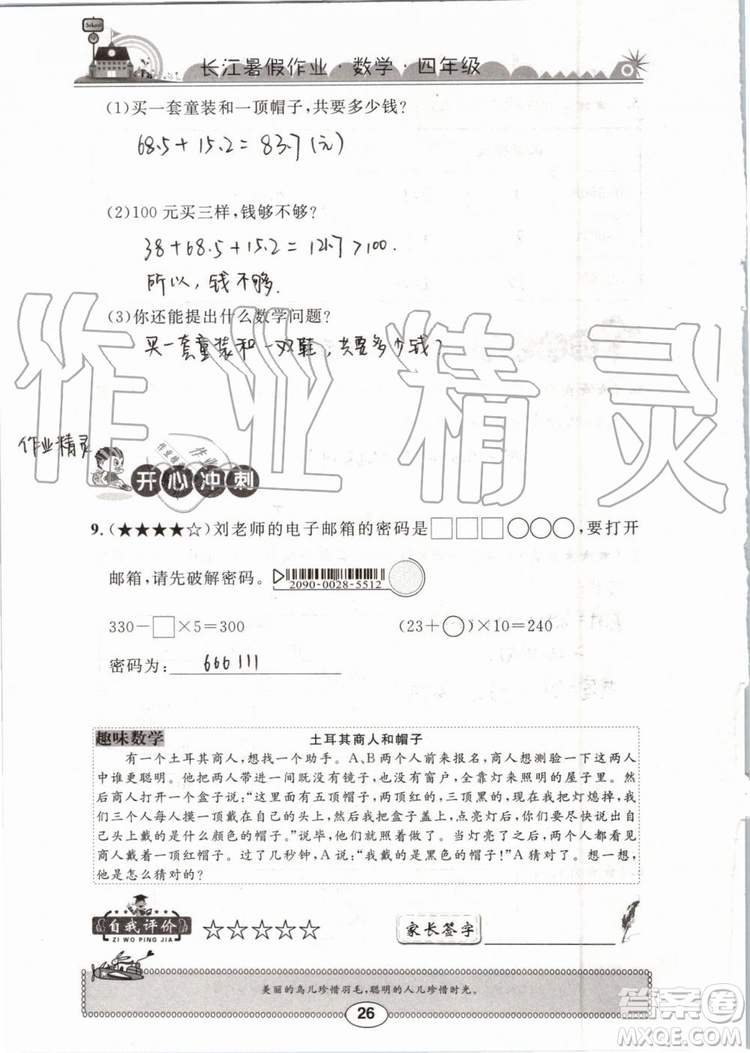 School
长江暑假作业·数学·四年级
(1)买一套童装和一顶帽子,共要多少钱?
68.5+15.2=83.7(元)
(2)100元买三样,钱够不够?
38+68.5+15.2=121.7>100.
所以,钱不够.
(3)你还能提出什么数学问题?
买一套童装和一双鞋,共要多少钱?
作业精灵
作业精灵
开心冲刺
9.(★★★★☆)刘老师的电子邮箱的密码是□□□○○○,要打开
邮箱,请先破解密码。
2090-0028-5512
330-□×5=300 (23+○)×10=240
密码为: 666111
趣味数学 土耳其商人和帽子
有一个土耳其商人,想找一个助手。A、B两个人前来报名,商人想测验一下这两人
中谁更聪明。他把两人带进一间既没有镜子,也没有窗户,全靠灯来照明的屋子里。然
后商人打开一个盒子说:“这里面有五顶帽子,两顶红的,三顶黑的,现在把灯熄掉,我
们三个人每人摸一顶戴在自己的头上,然后我把盒子盖上,点亮灯后,你们要尽快说出自
己头上戴的是什么颜色的帽子。”说毕,他们就照着做了。当灯亮了之后,两人都看到
商人戴着一顶红帽子。过了几秒钟,A说:“我戴的是黑色的帽子!”A猜对了。想一想,他
是怎么猜对的?
自我评价 ☆☆☆☆☆ 家长签字
ZI WO PING JIA
美丽的鸟儿珍惜羽毛,聪明的人儿珍惜时光。
26
答案圈
MXQE.COM